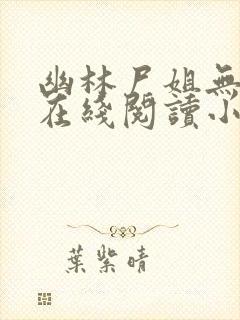 幽林尸姐無
在綫閱讀小
葉紫晴